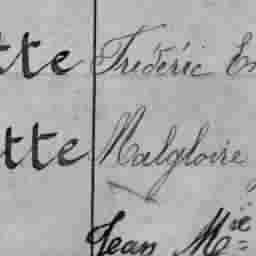 tte Fréderic En
tte Malgloire
Jean Mie